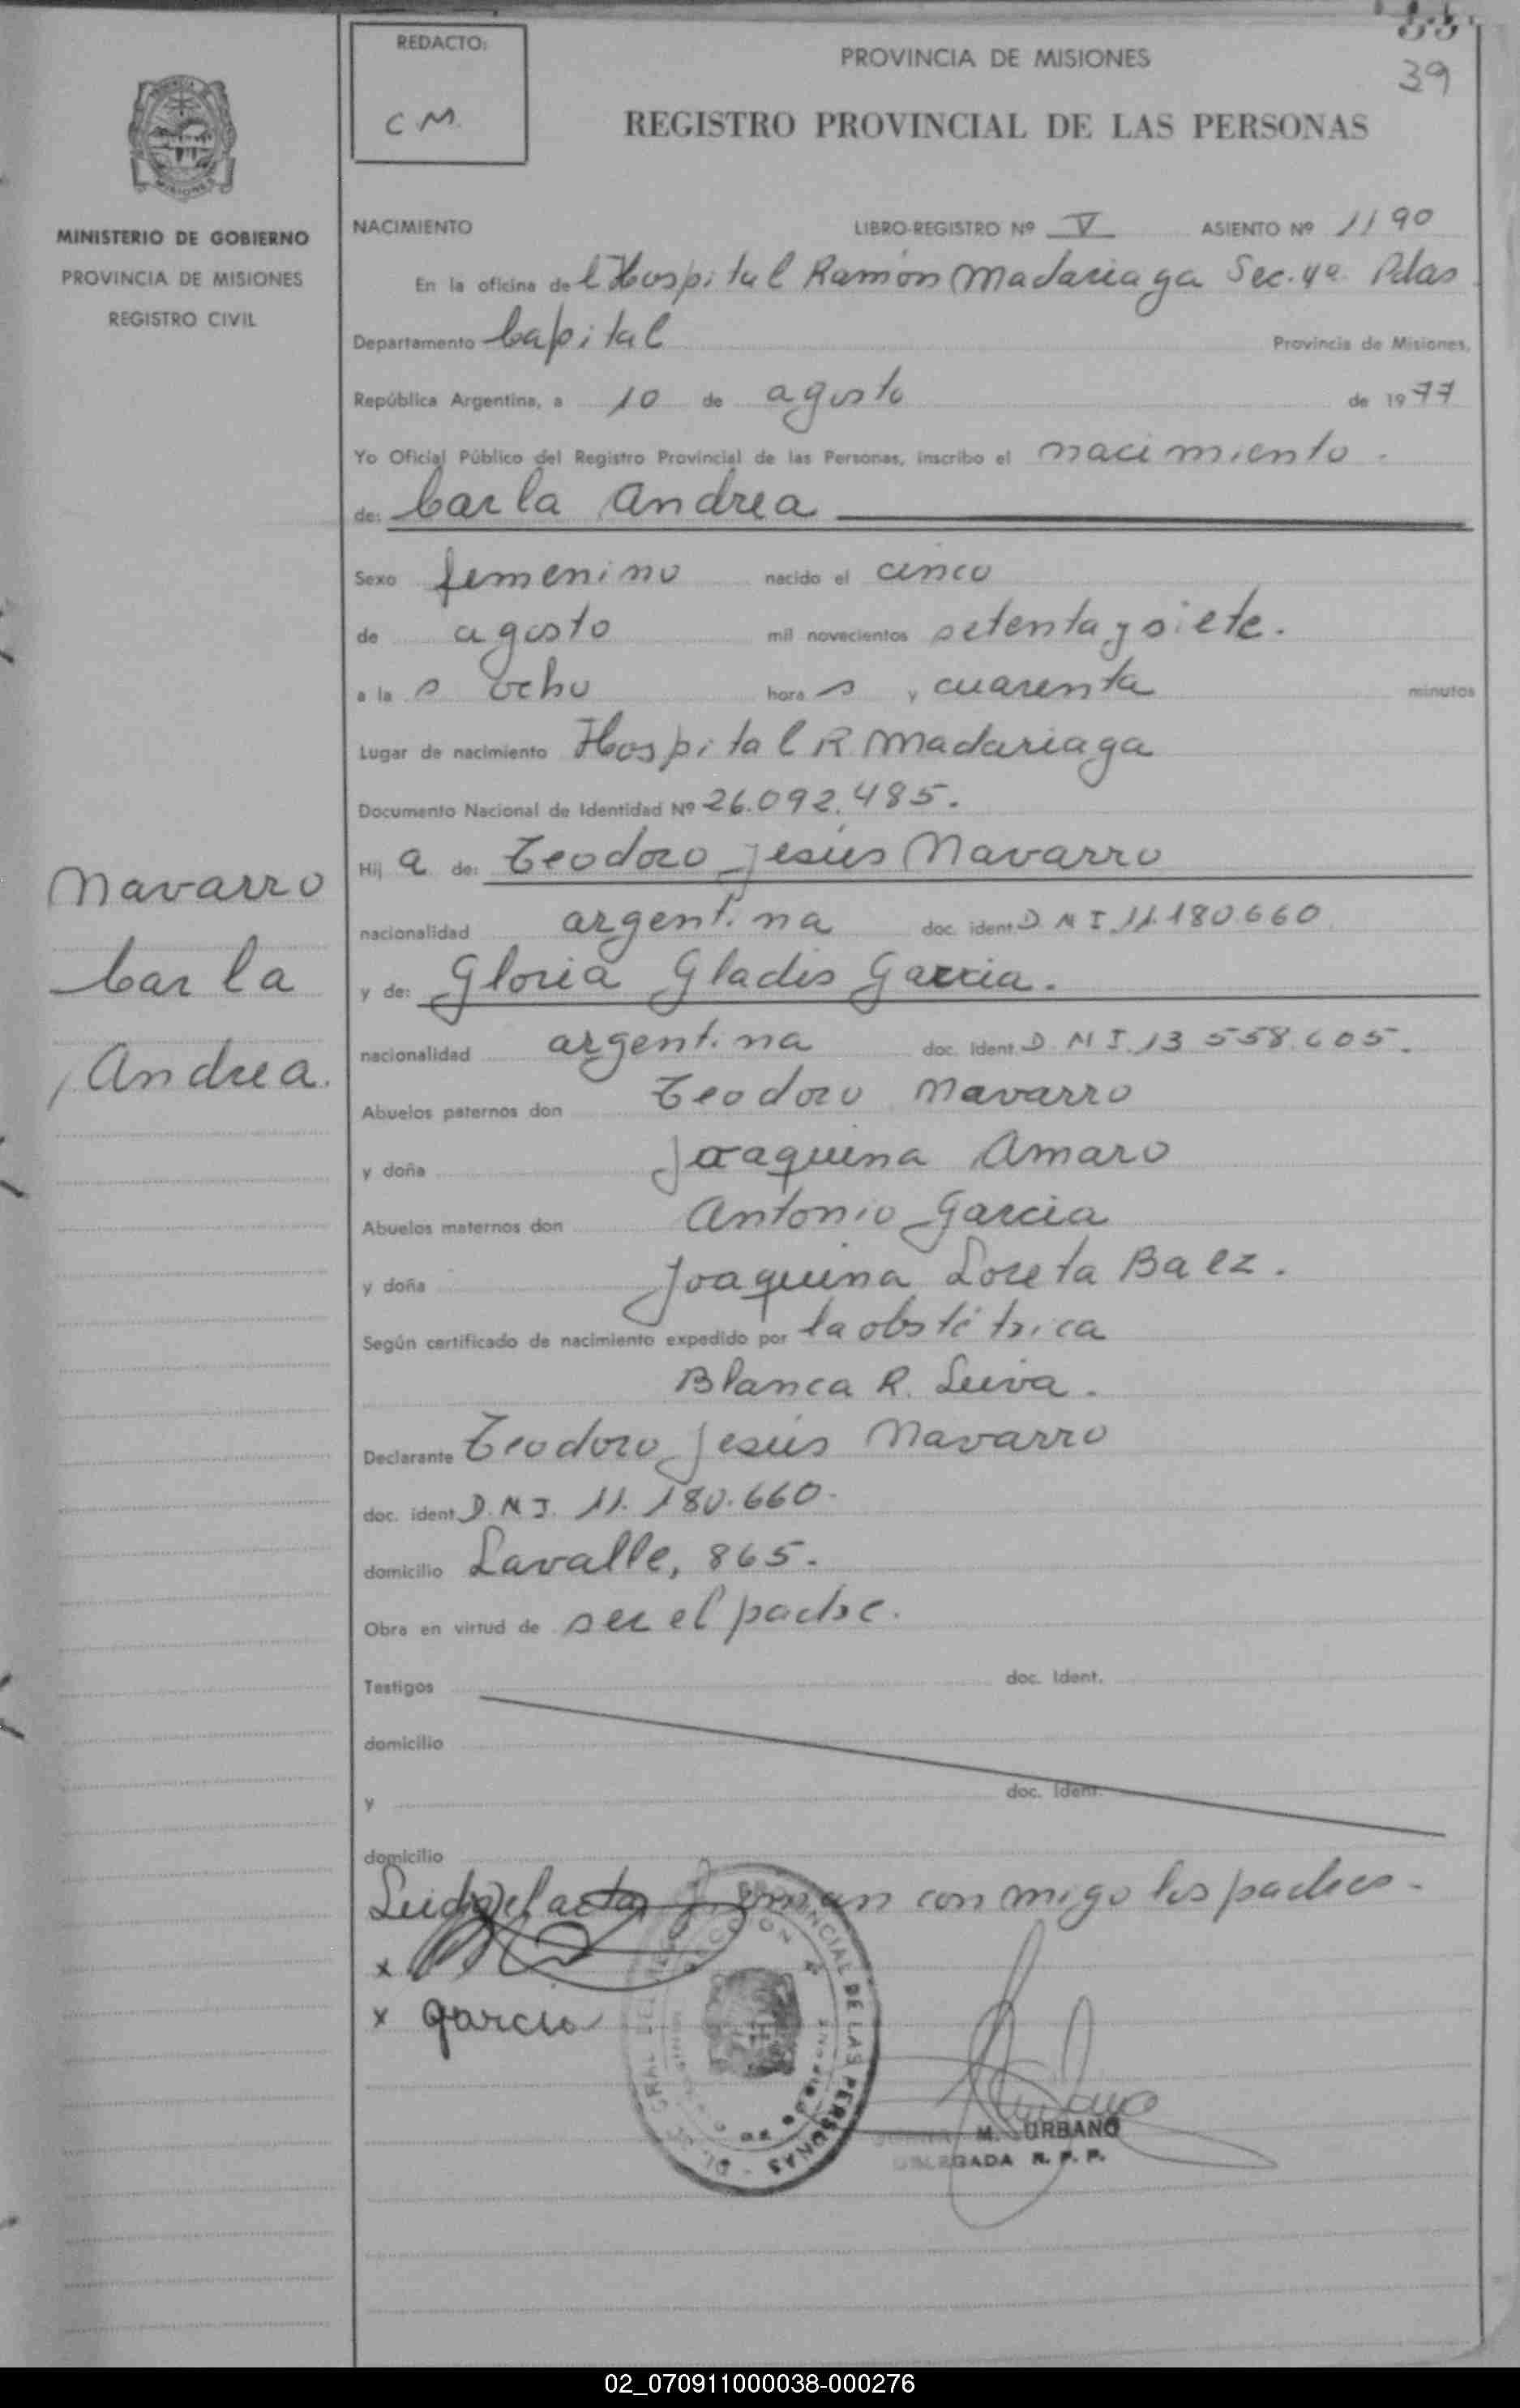 39
REDACTO:
C M.
PROVINCIA DE MISIONES
REGISTRO PROVINCIAL DE LAS PERSONAS
MISIONES
MINISTERIO DE GOBIERNO
PROVINCIA DE MISIONES
REGISTRO CIVIL
NACIMIENTO LIBRO-REGISTRO Nº V ASIENTO Nº 1190
En la oficina del Hospital Ramón Madariaga Sec. 4ª Pdas
Departamento Capital Provincia de Misiones,
República Argentina, a 10 de agosto de 1977
Yo Oficial Público del Registro Provincial de las Personas, inscribo el nacimiento.
de: Carla Andrea
Sexo femenino nacido el cinco
de agosto mil novecientos setenta y siete.
a la s ocho hora s y cuarenta minutos
Lugar de nacimiento Hospital R Madariaga
Documento Nacional de Identidad Nº 26.092.485.
Hij a de: Teodoro Jesús Navarro
nacionalidad argentina doc. ident. D N I. 11.180.660
y de: Gloria Gladis Garcia.
nacionalidad argentina doc. Ident. D N I. 13 558.605.
Abuelos paternos don Teodoro Navarro
y doña Joaquina Amaro
Abuelos maternos don Antonio Garcia
y doña Joaquina Loreta Baez.
Según certificado de nacimiento expedido por la obstétrica
Blanca R. Leiva.
Declarante Teodoro Jesús Navarro
doc. ident. D. N I. 11.180.660.
domicilio Lavalle, 865.
Obra en virtud de ser el padre.
Testigos doc. Ident.
domicilio
y doc. Ident.
domicilio
Leida el acta firman con migo los padres.
x
x garcia
M. URBANO
DELEGADA R. P. P.
Navarro
Carla
Andrea.
02_070911000038-000276